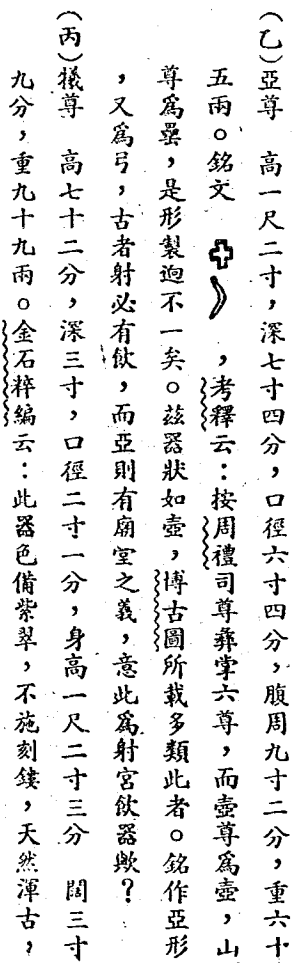 （乙）亞尊　高一尺二寸，深七寸四分，口徑六寸四分，腹周九寸二分，重六十
五兩。銘文　　，考釋云：按周禮司尊彝掌六尊，而壺尊爲壺，山
尊爲罍，是形製迥不一矣。茲器狀如壺，博古圖所載多類此者。銘作亞形
，又爲弓，古者射必有飲，而亞則有廟室之義，意此爲射宮飲器歟？
（丙）犧尊　高七十二分，深三寸，口徑二寸一分，身高一尺二寸三分　闊三寸
九分，重九十九兩。金石粹編云：此器色備紫翠，不施刻鏤，天然渾古，